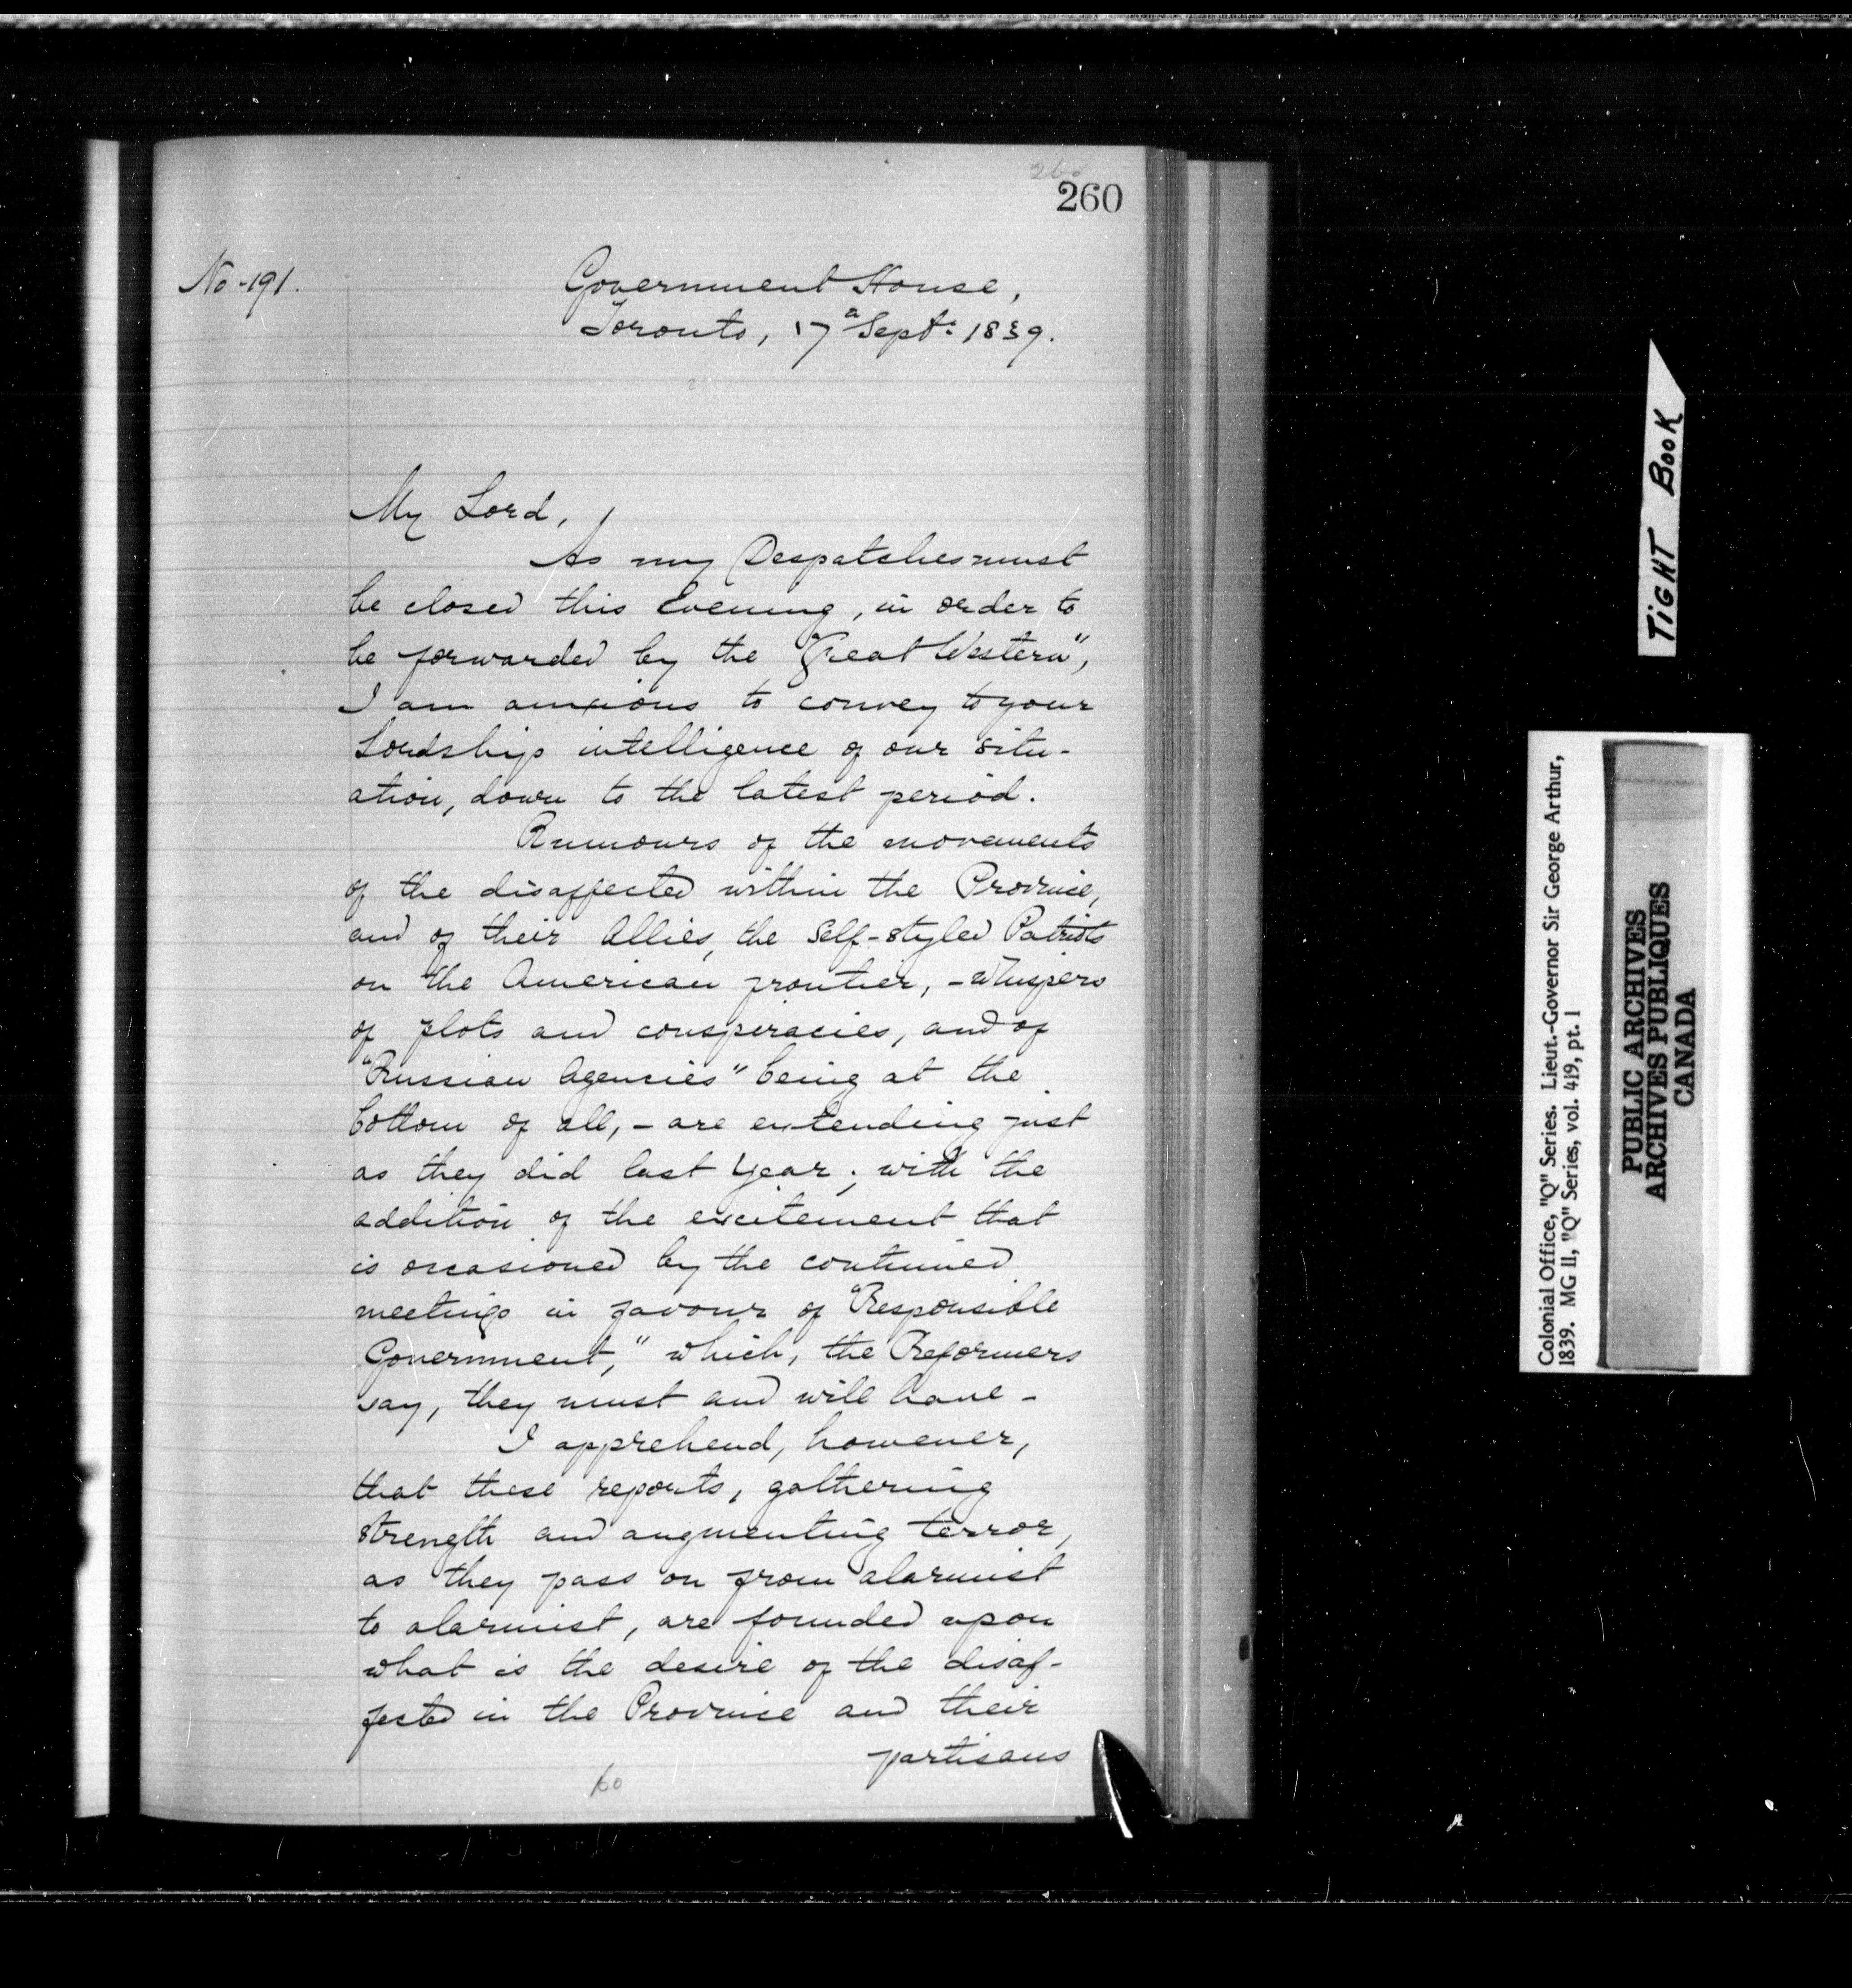 260
260
No. 191.
Government House,
Toronto, 17 Sept: 1839.
My Lord,
As my Despatches must
be closed this Evening, in order to
be forwarded by the "Great Western",
I am anxious to convey to your
Lordship intelligence of our situ-
ation, down to the latest period.
Rumours of the movements
of the disaffected within the Province,
and of their Allies, the Self-styled Patriots
on the American frontier, - whispers
of plots and conspiracies, and of
"Russian Agencies" being at the
bottom of all, - are extending just
as they did last Year; with the
addition of the excitement that
is occasioned by the continued
meetings in favour of "Responsible
Government," which, the Reformers
say, they must and will have -
I apprehend, however,
that these reports, gathering
strength and augmenting terror,
as they pass on from alarmist
to alarmist, are founded upon
what is the desire of the disaf-
fected in the Province and their
partisans
60
TIGHT BOOK
Colonial Office, "Q" Series. Lieut.-Governor Sir George Arthur,
1839. MG 11, "Q" Series, vol. 419, pt. 1
PUBLIC ARCHIVES
ARCHIVES PUBLIQUES
CANADA